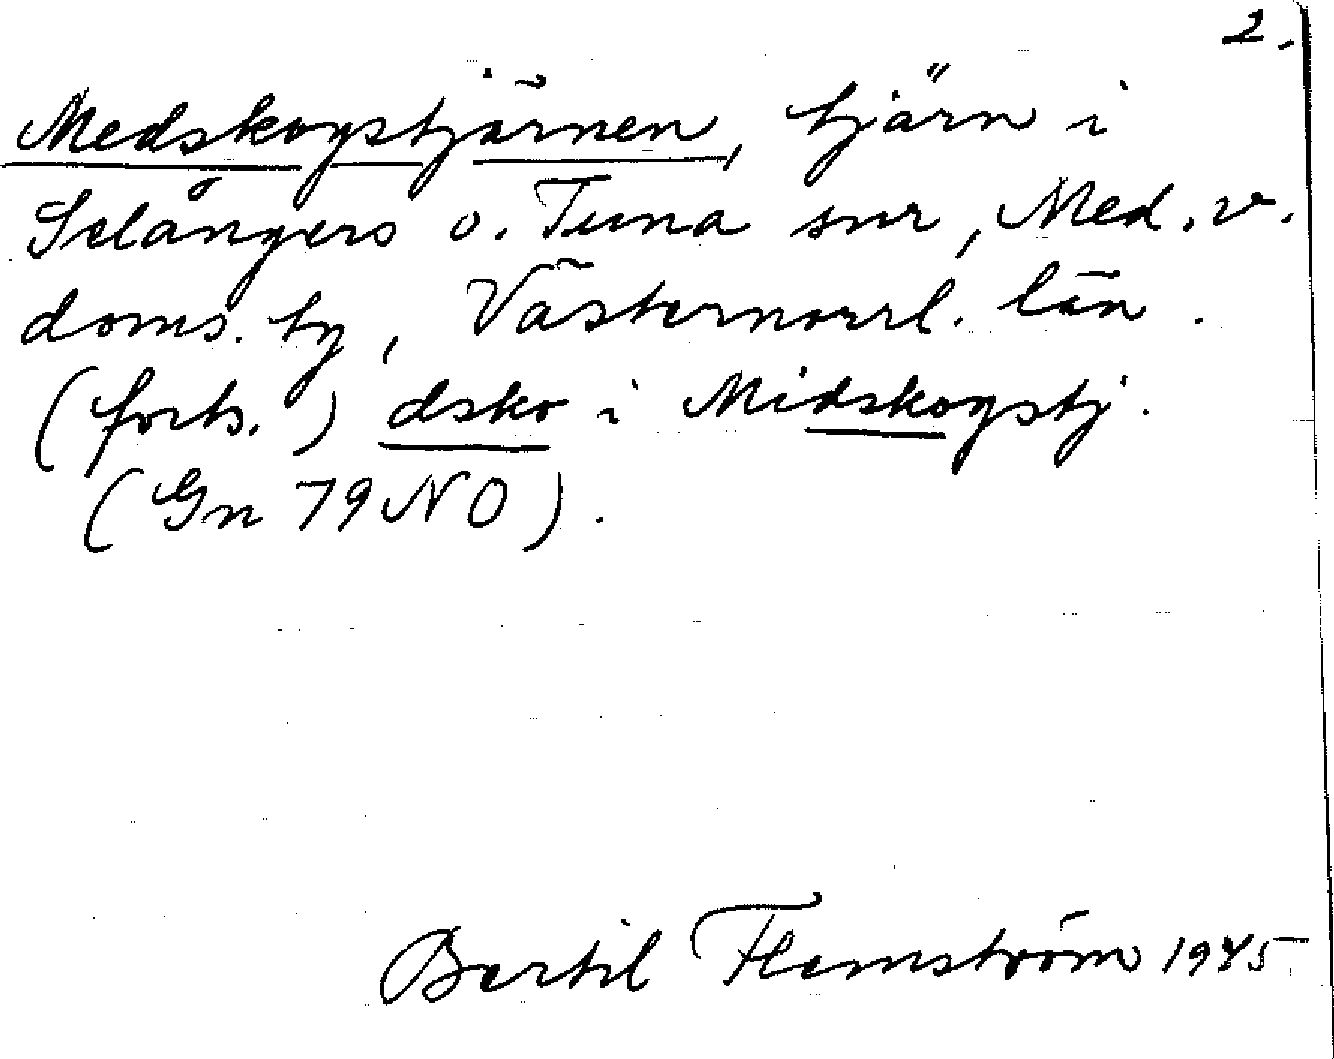 2.
Medskogstjärnen, tjärn i
Selångers o. Tuna snr, Med. v.
doms. ty, Västernorrl. län.
(forts.) dsko i Midskogstj.
(Gn 79 NO).
Bertil Flemström 1945